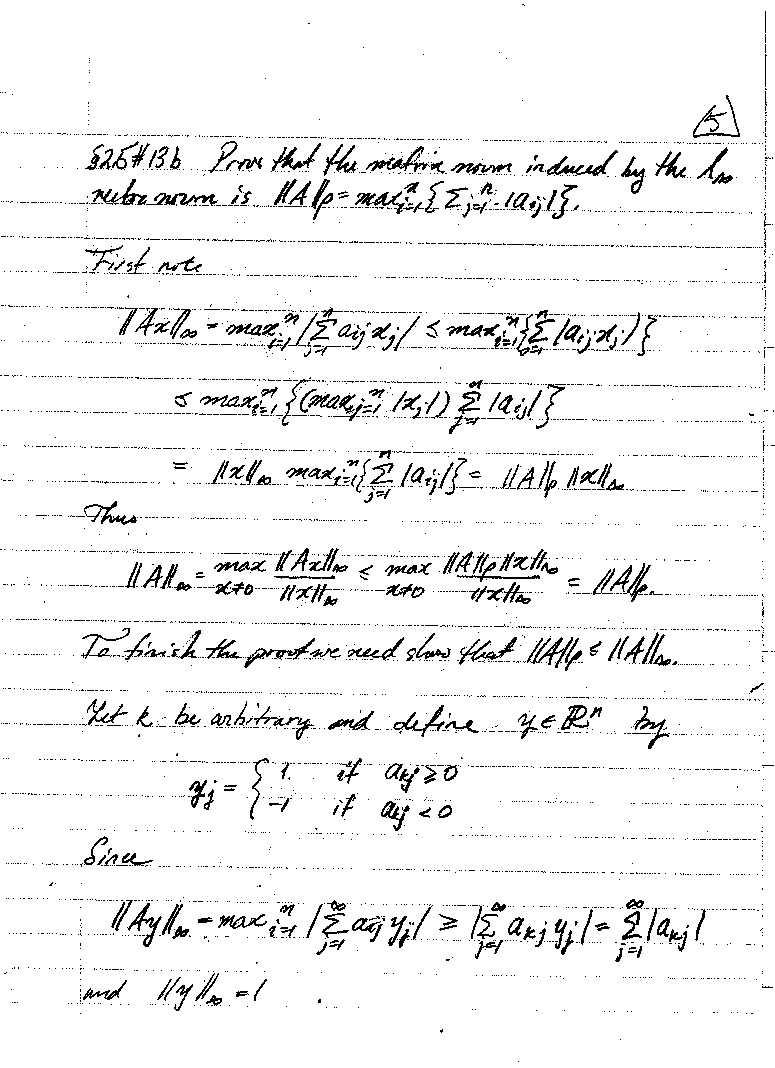 5
§2.5 #13b Prove that the matrix norm induced by the l∞
vector norm is ||A||ρ = max_{i=1}^{n} { Σ_{j=1}^{n} |a_{ij}| }.
First note
||Ax||∞ = max_{i=1}^{n} | Σ_{j=1}^{n} a_{ij} x_j | ≤ max_{i=1}^{n} { Σ_{j=1}^{n} |a_{ij} x_j| }
≤ max_{i=1}^{n} { (max_{j=1}^{n} |x_j|) Σ_{j=1}^{n} |a_{ij}| }
= ||x||∞ max_{i=1}^{n} { Σ_{j=1}^{n} |a_{ij}| } = ||A||ρ ||x||∞
Thus
||A||∞ = max_{x≠0} ||Ax||∞ / ||x||∞ ≤ max_{x≠0} ||A||ρ ||x||∞ / ||x||∞ = ||A||ρ.
To finish the proof we need show that ||A||ρ ≤ ||A||∞.
Let k be arbitrary and define y ∈ ℝ^n by
y_j = { 1 if a_{kj} ≥ 0
-1 if a_{kj} < 0
Since
||Ay||∞ = max_{i=1}^{n} | Σ_{j=1}^{∞} a_{ij} y_j | ≥ | Σ_{j=1}^{∞} a_{kj} y_j | = Σ_{j=1}^{∞} |a_{kj}|
and ||y||∞ = 1